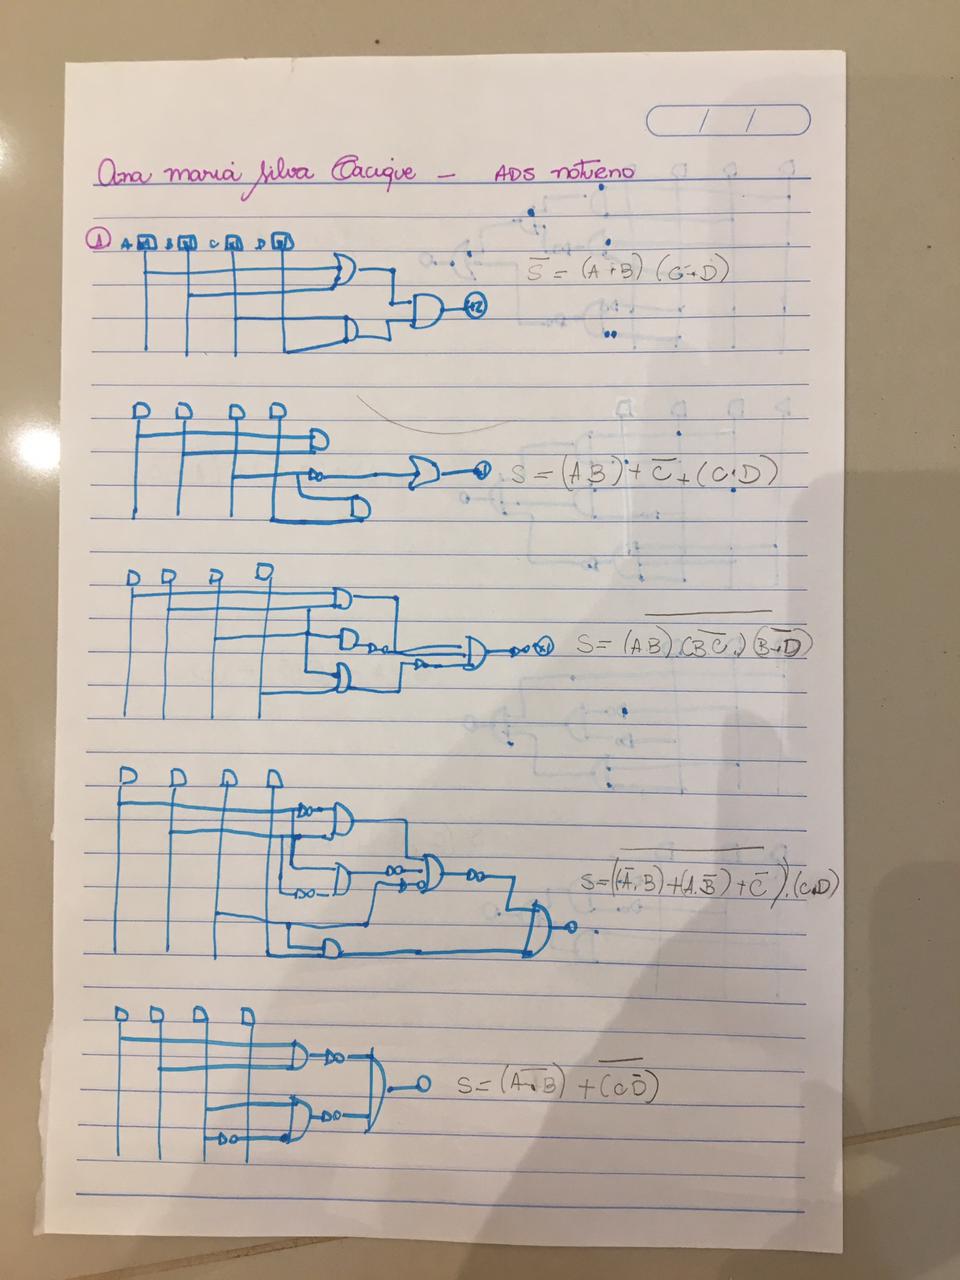 / /
Ana maria Silva Cacique - ADS noturno
1 A B C D
S̅ = (A+B) (C+D)
S = (A.B) + C̅ + (C.D)
x1
S = (AB).(BC).(B+D)
S=((A̅.B)+(A.B̅)+C̅).(C.D)
S=(A+B) + (CD̅)